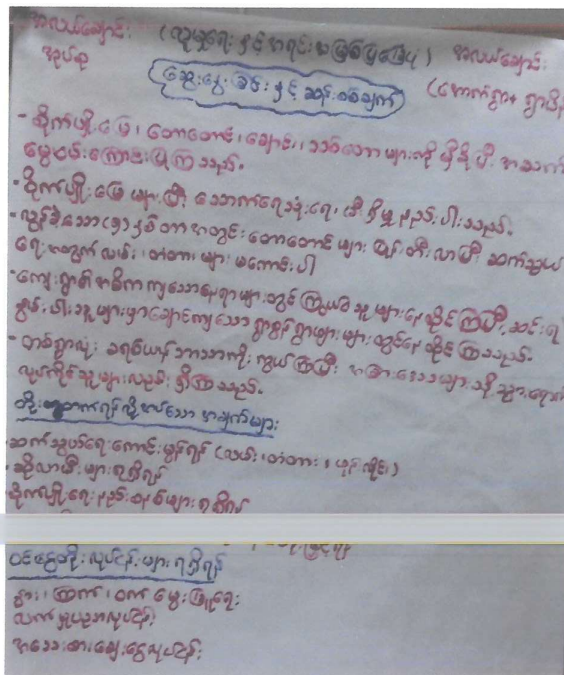 အလယ်ချောင်း (လူမှုရေးနှင့် အရင်းအမြစ်ပြမြေပုံ) အလယ်ချောင်း
အုပ်စု (တောက်ရွာ+ ရွာမ
ဆွေးနွေးခြင်းနှင့် ဆန်းစစ်ချက်
- စိုက်ပျိုးမြေ၊ တောတောင်၊ ချောင်း၊ သစ်တော များကို မှီခိုပြီး အသက်
မွေးဝမ်းကြောင်းပြုကြသည်။
- စိုက်ပျိုးမြေများပြီး သောက်ရေသုံးရေ၊ မီးရရှိမှု နည်းပါးသည်။
- လွန်ခဲ့သော (၅) နှစ်တာအတွင်း တောတောင်များ ပြုန်းတီးလာပြီး ဆက်သွယ်
ရေးအတွက် လမ်း၊ တံတား များ မကောင်းပါ
- ကျေးရွာ၏ အဓိကကျသောနေရာများတွင် ကြွယ်ဝသူများနေထိုင်ကြပြီး, ဆင်းရဲ
နွမ်းပါးသူများမှာ ချောင်ကျသော ရွာစွန်ရွာဖျားများတွင် နေထိုင်ကြသည်။
- တစ်ရွာလုံး ခရစ်ယာန်ဘာသာကို ကိုးကွယ်ကြပြီး အခြားဒေသများသို့ သွားရောက်
လုပ်ကိုင်သူများလည်း ရှိကြသည်။
တိုးတက်ရန်လိုအပ်သော အချက်များ
- ဆက်သွယ်ရေးကောင်းမွန်ရန် (လမ်း၊ တံတား၊ ဖုန်းလိုင်း)
- ဆိုလာမီးများရရှိရန်
- စိုက်ပျိုးရေးနည်းစနစ်များရရှိရန်
ဝင်ငွေတိုး လုပ်ငန်းများရရှိရန်
နွား၊ ကြက်၊ ဝက် မွေးမြူရေး
လက်မှုပညာလုပ်ငန်း
အသေးစားချေးငွေလုပ်ငန်း